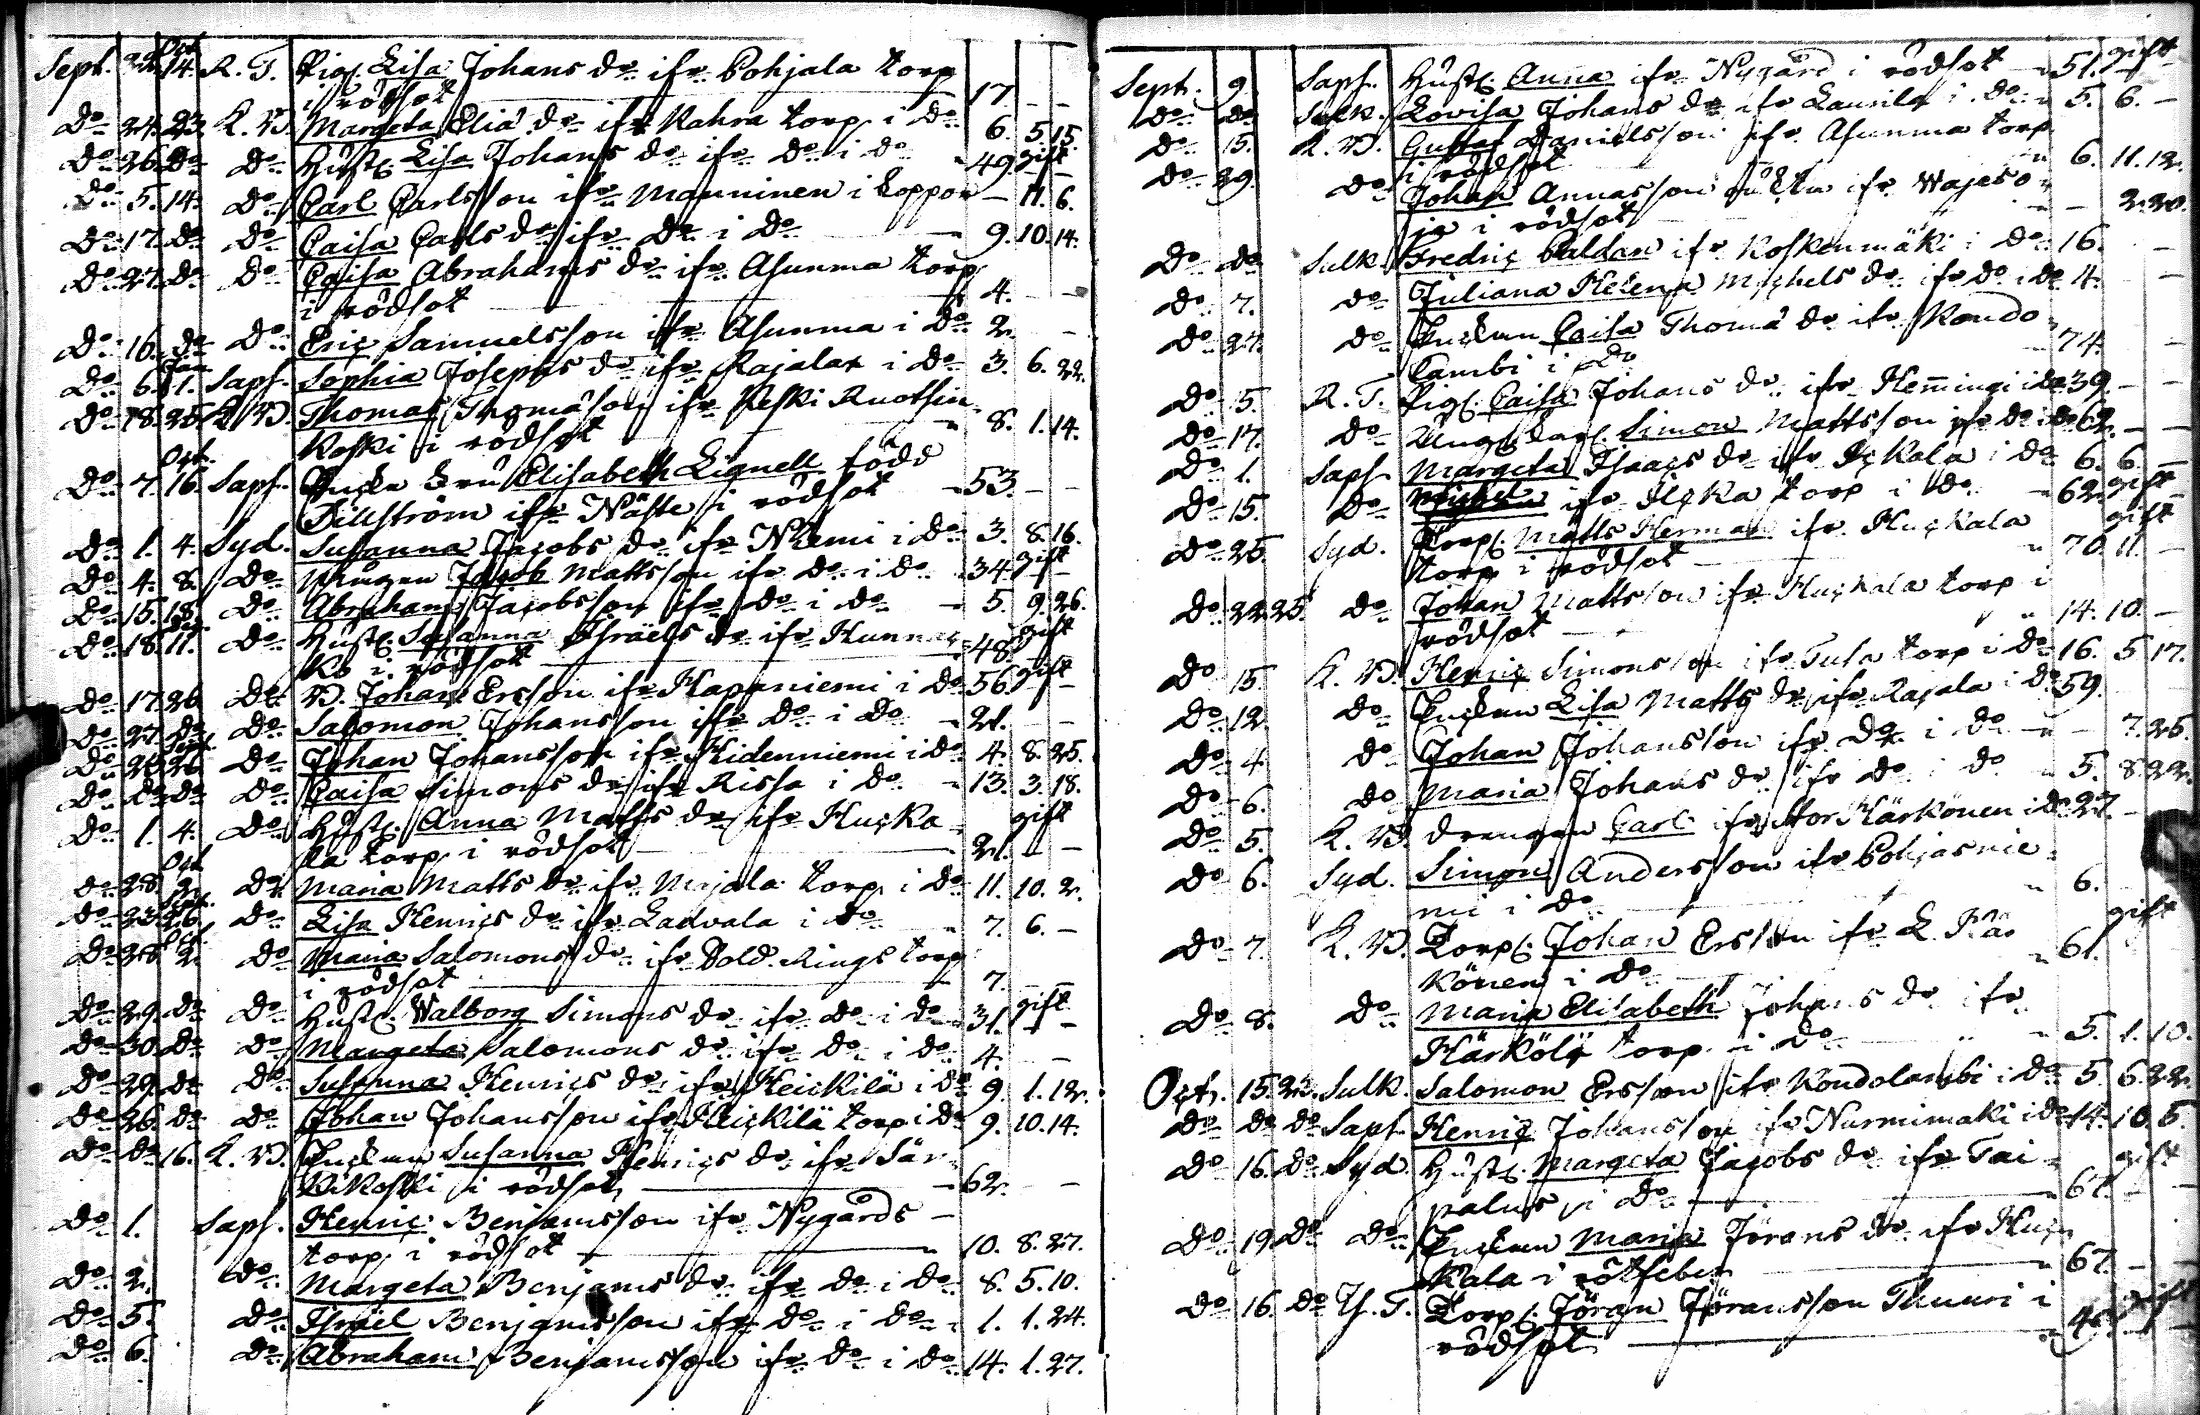 Sept. 22. Oct. 14. R. T. Pig. Lisa Johans dr ifr. Pohjala torp
i rödsot — 17. — —
Do 24. 23. K. W. Margeta Eliä dr ifr Kahra torp i do 6. 5. 15.
Do 26. Do Do Hust. Lisa Johans dr ifr do i do 49. gift
Do 5. 14. Do Carl Carlsson ifr Manninen i koppor — 11. 6.
Do 17. Do Do Caisa Carls dr ifr do i do 9. 10. 14.
Do 27. Do Do Caisa Abrahams dr ifr Asunma torp
i rödsot — 4. —
Do 16. Do Do Eric Samuelsson ifr Asunma i do 2. —
Do 6. 11. Saps. Sophia Josephs dr ifr Rajalax i do 3. 6. 22.
Do 18. 25. K. W. Thomas Thomasson ifr Keski Ruotsin
koski i rödsot 8. 1. 14.
Do 7. Oct. 16. Saps. Enckefru Elisabeth Lignell född
Dillström ifr Näste i rödsot 53. —
Do 1. 4. Syd. Susanna Jacobs dr ifr Niemi i do 3. 8. 16.
Do 4. 8. Do Jacob Mattsson ifr do i do 34. gift
Do 15. 18. Do Abraham Jacobsson ifr do i do 5. 9. 26.
Do 18. 11. Do Hust. Susanna Israels dr ifr Hunnac
ko i rödsot 48. gift
Do 17. 26. Do W. Johan Ersson ifr Hapaniemi i do 56. gift
Do 27. Do Do Salomon Johansson ifr do i do 21. —
Do 26. Sept. 26. Do Johan Johansson ifr Hidenniemi i do 4. 8. 25.
Do Do Do Do Caisa Simons dr ifr Rissa i do 13. 3. 18.
Do 1. 4. Do Hust. Anna Matts dr ifr Hucka
la torp i rödsot 21. gift
Do 28. Oct. 2. Do Maria Matts dr ifr Mojala torp i do 11. 10. 2.
Do 23. Sept. 26. Do Lisa Henrics dr ifr Ladvala i do 7. 6. —
Do 28. Oct. 2. Do Maria Salomons dr ifr Bold. Rings torp
i rödsot 7. —
Do 29. Do Do Hust. Walborg Simons dr ifr do i do 31. gift
Do 30. Do Do Margeta Salomons dr ifr do i do 4. —
Do 29. Do Do Susanna Henrics dr ifr Heickilä i do 9. 1. 12.
Do 26. Do Do Johan Johansson ifr Heickilä torp i do 9. 10. 14.
Do Do 16. K. W. Enckan Susanna Henrics dr ifr Sär
kikoski i rödsot 62. —
Do 1. Saps. Henric Benjamsson ifr Nygårds
torp i rödsot 10. 8. 27.
Do 2. Do Margeta Benjams dr ifr do i do 8. 5. 10.
Do 5. Do Israel Benjamsson ifr do i do 1. 1. 24.
Do 6. Do Abraham Benjamsson ifr do i do 14. 1. 27.
Sept. 9. Saps. Hust. Anna ifr Nygård i rödsot 51. gift
Do Do Sulk. Lovisa Johans dr ifr Laurila i do 5. 6. —
Do 15. K. W. Gustaf Danielsson ifr Asunma torp
i rödsot 6. 11. 12.
Do 29. Do Johan Annasson ifr Wajeso
ja i rödsot — 2. 20.
Do Do Sulk. Fredric Paldan ifr Koskenmäki i do 16. —
Do 7. Do Juliana Helena Michels dr ifr do i do 4. —
Do 27. Do Enckan Caisa Thomä dr ifr Kondo
lambi i do 74. —
Do 5. R. T. Pig. Caisa Johans dr ifr Hemmingi i do 39. —
Do 17. Do Simon Mattsson ifr do i do 62. — —
Do 1. Saps. Margeta Isaacs dr ifr Ickala i do 6. 6. —
Do 15. Do ifr Ilcka torp i do 62. gift
Do 25. Syd. Torp. Matts Herman ifr Huckala
torp i rödsot 70. 11. gift
Do 22. 25. Do Johan Mattsson ifr Huckala torp i
rödsot — 14. 10. —
Do 15. K. W. Henric Simonsson ifr Tusa torp i do 16. 5. 17.
Do 12. Do Enckan Lisa Matts dr ifr Rajala i do 59.
Do 4. Do Johan Johansson ifr do i do — 7. 25.
Do 6. Do Maria Johans dr ifr do i do 5. 8. 22.
Do 5. K. W. Drengen Carl ifr Stor Härkönen i do 27. —
Do 6. Syd. Simon Andersson ifr Pohjasnie
mi i do 6.
Do 7. K. W. Torp. Johan Ersson ifr L. Här
könen i do 61. gift
Do 8. Do Maria Elisabeth Johans dr ifr
Härkölä torp i do 5. 1. 10.
Oct. 15. 23. Sulk. Salomon Ersson ifr Kondolambi i do 5. 6. 22.
Do Do Do Saps. Henric Johansson ifr Nurmimäki i do 14. 10. 5.
Do 16. Do Syd. Hust. Margeta Jacobs dr ifr Tai
palus i do 67. gift
Do 19. Do Do Enckan Maria Jörans dr ifr Huc
kala i rötfeber 67. —
Do 16. Do Torp. Jöran Jöransson Thuuri i
rödsot gift